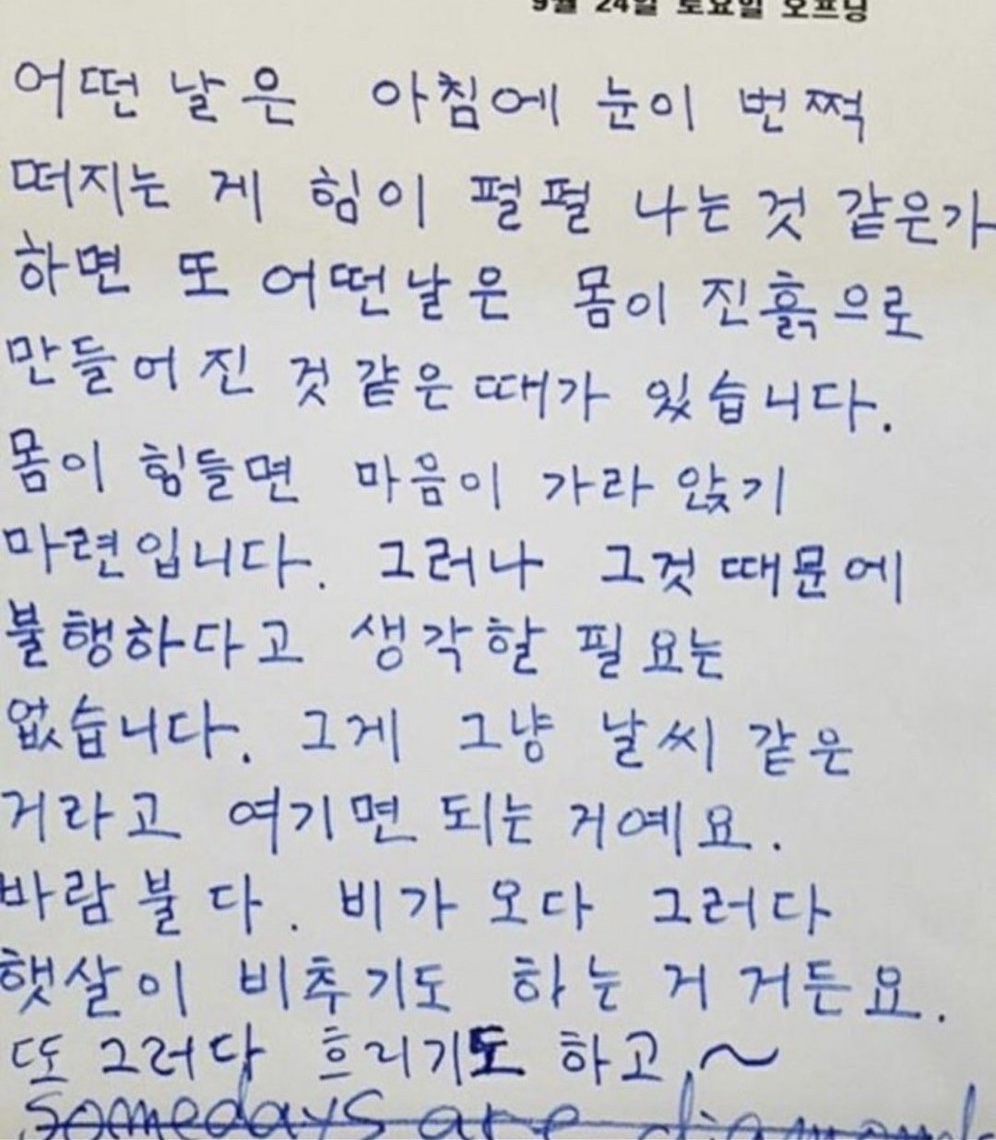 9월 24일 토요일 오프닝
어떤 날은 아침에 눈이 번쩍
떠지는 게 힘이 펄펄 나는 것 같은가
하면 또 어떤날은 몸이 진흙으로
만들어 진 것 같은 때가 있습니다.
몸이 힘들면 마음이 가라 앉기
마련입니다. 그러나 그것 때문에
불행하다고 생각할 필요는
없습니다. 그게 그냥 날씨 같은
거라고 여기면 되는 거예요.
바람 불다. 비가 오다 그러다
햇살이 비추기도 하는 거 거든요.
또 그러다 흐리기도 하고,~
somedays are diamonds